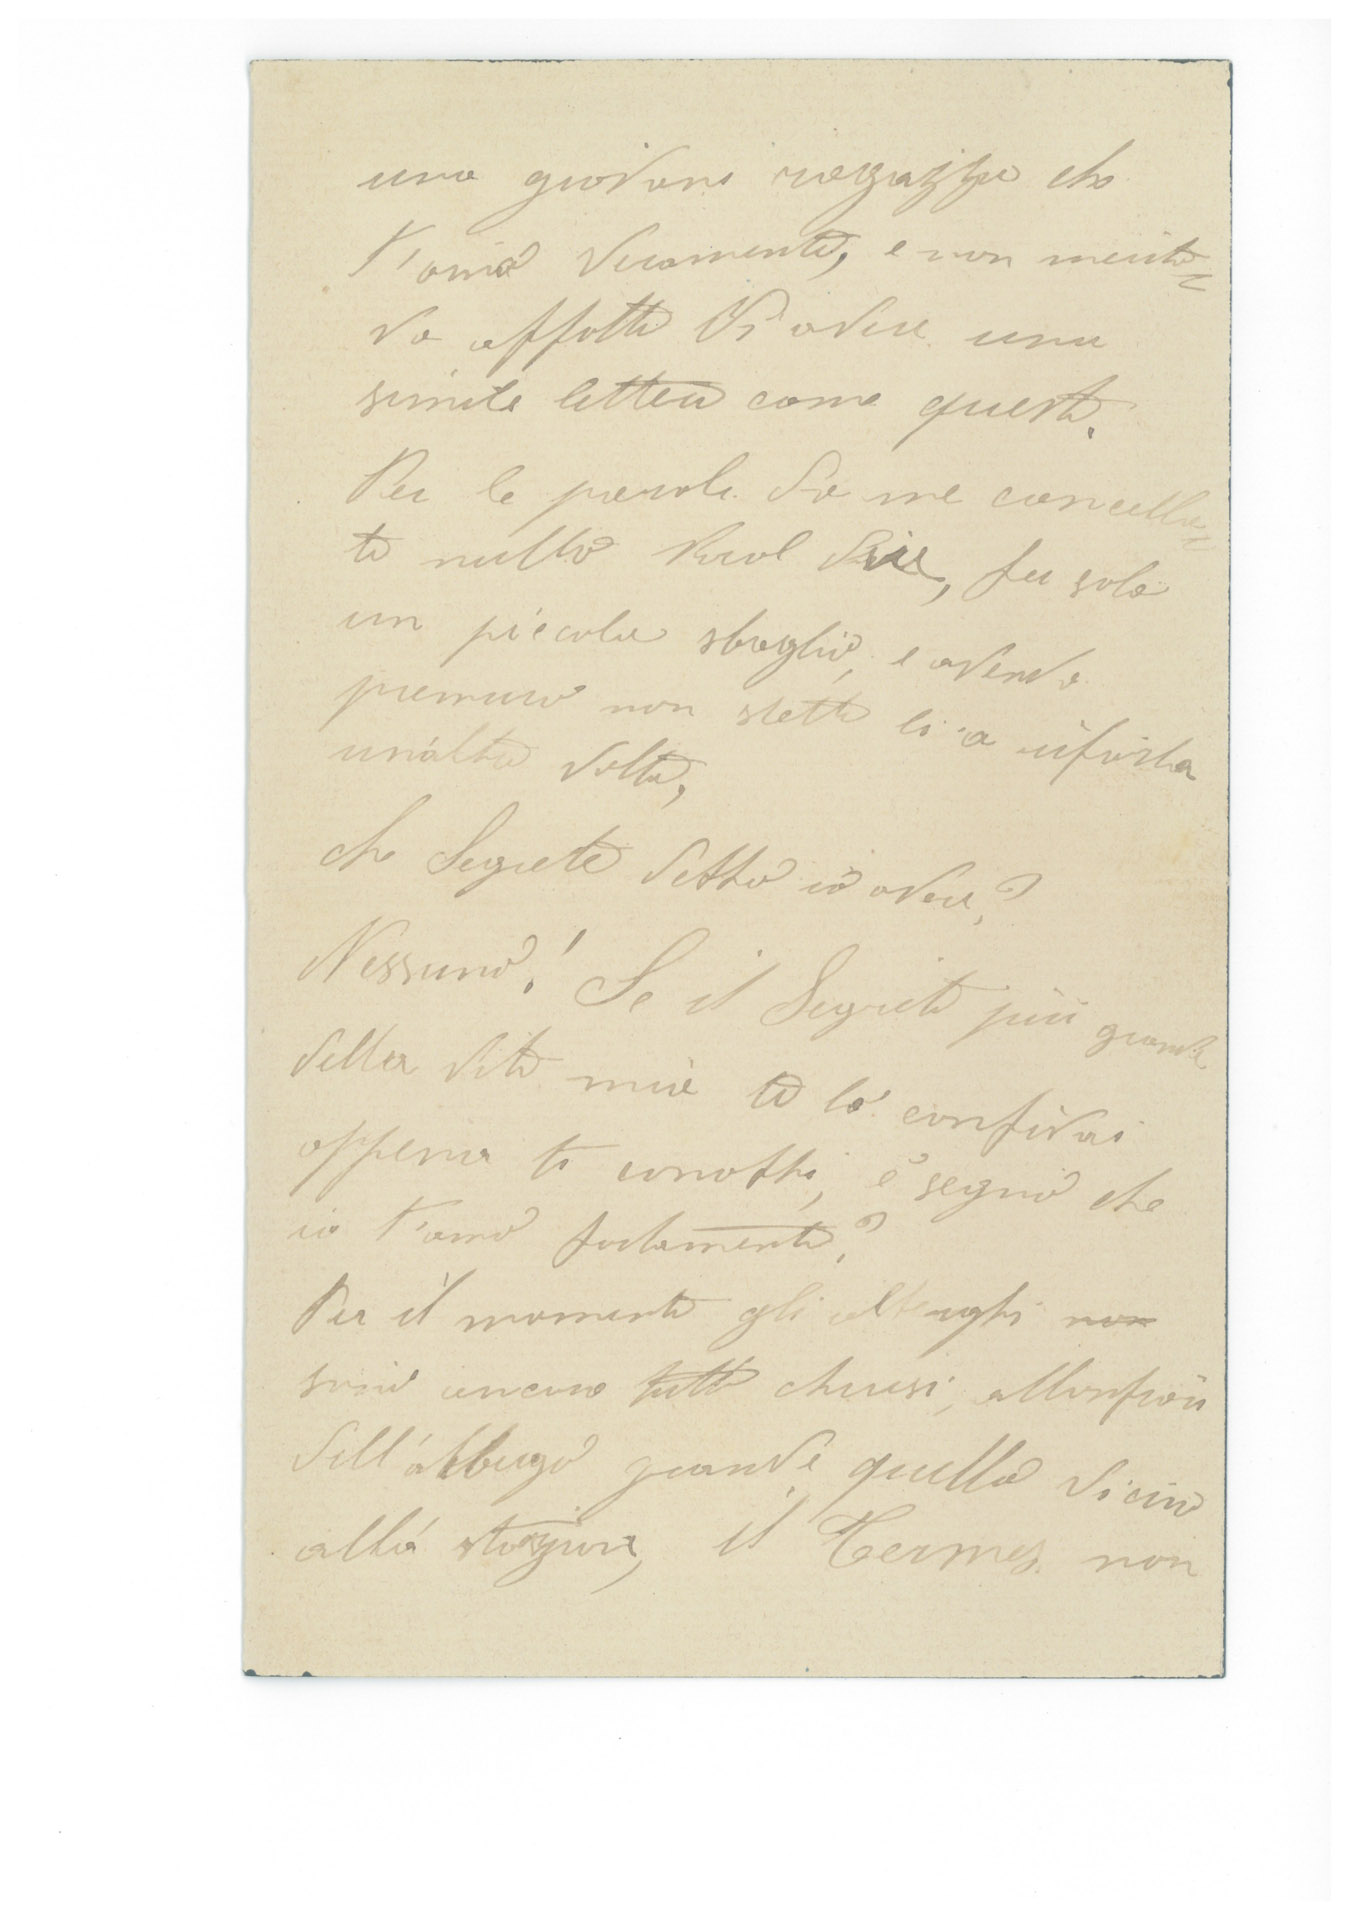 una giovane ragazza che
t'ama veramente, e non merita=
va affatto di avere una
simile lettera come questa.
Per le parole da me cancella=
te nulla vuol dire, fu solo
un piccolo sbaglio, e avendo
premura non stetti li a rifarla
un'altra volta,
che Segreto debbo io avere?
Nessuno! Se il Segreto più grande
della vita mia te lo confidai
appena ti conobbi, è segno che
io t'amo fortemente?
Per il momento gli alberghi non
sono ancora tutti chiusi,
dell'albergo grande quello vicino
alla stazione, il Termes non